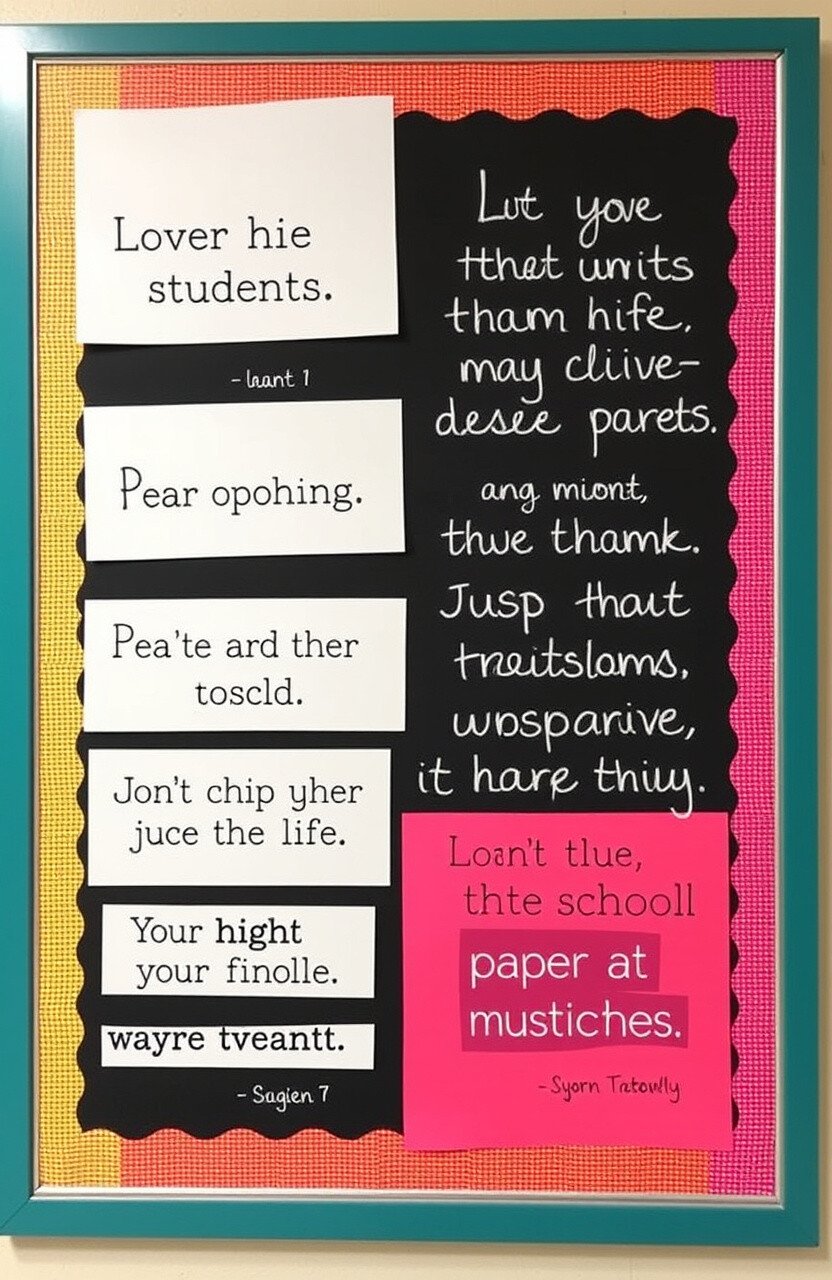 Lover hie
students.
- leant 1
Pear opohing.
Pea'te ard ther
toscld.
Jon't chip yher
juce the life.
Your hight
your finolle.
wayre tveantt.
- Sagien 7
Lut yove
tthat units
tham hife.
may cliive-
desee parets.
ang miont,
thwe thamk.
Jusp thaut
trreitsloms,
wosparive,
it hare thiuy.
Loan't tlue,
thte schooll
paper at
mustiches.